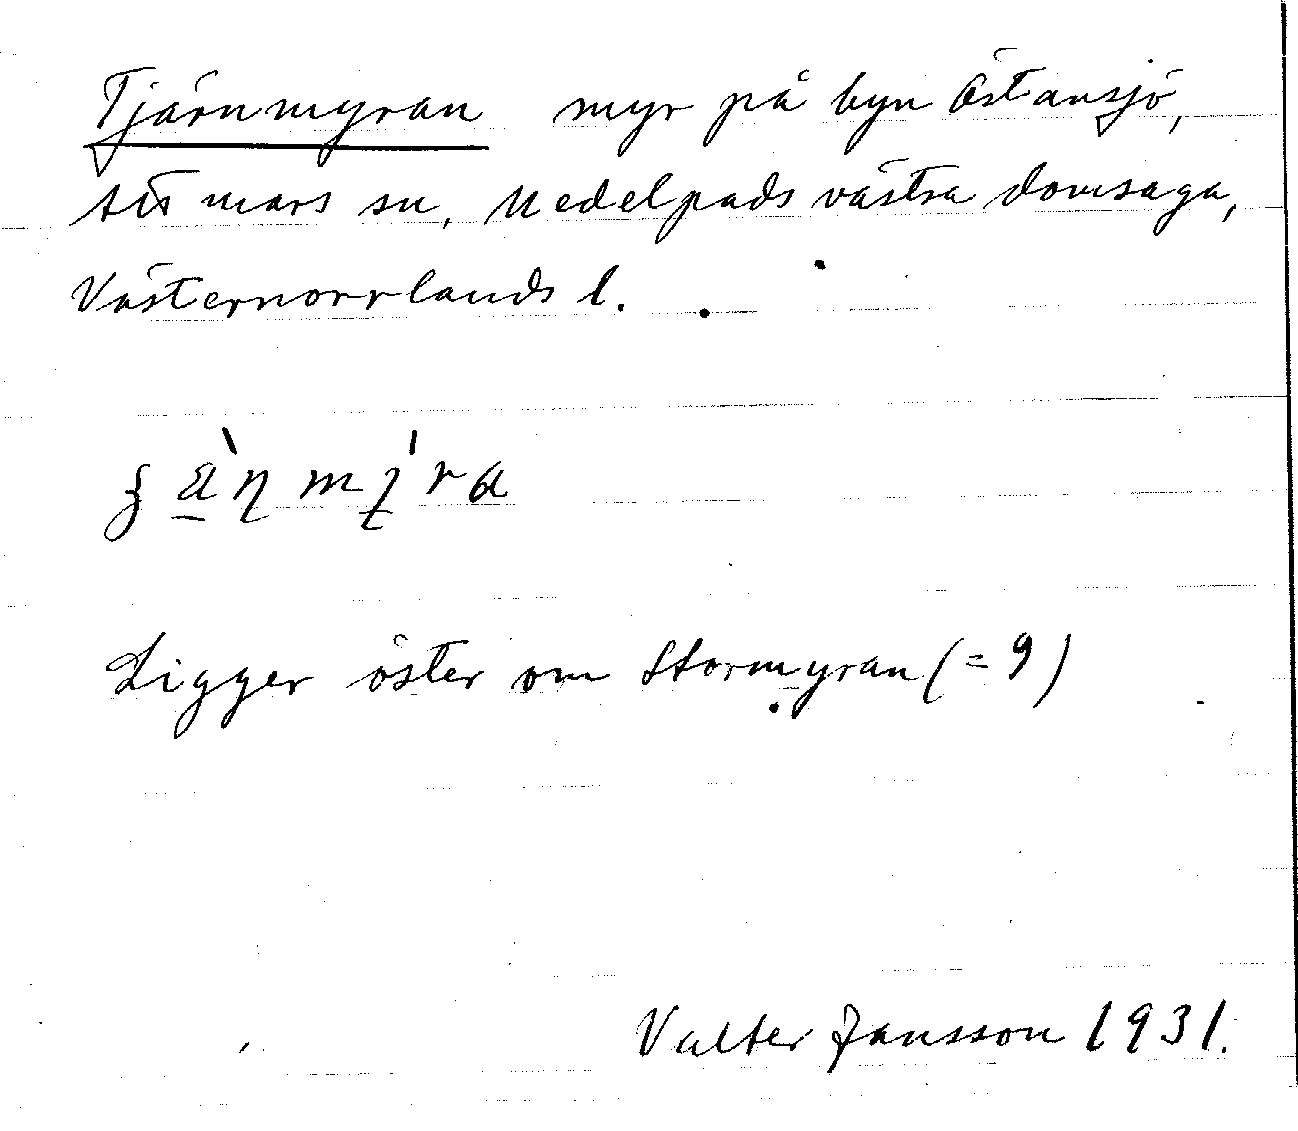 Tjärnmyran myr på byn Östansjö,
Attmars sn, Medelpads västra domsaga,
Västernorrlands l.
Ligger öster om Stormyran (= 9)
Valter Jansson 1931.